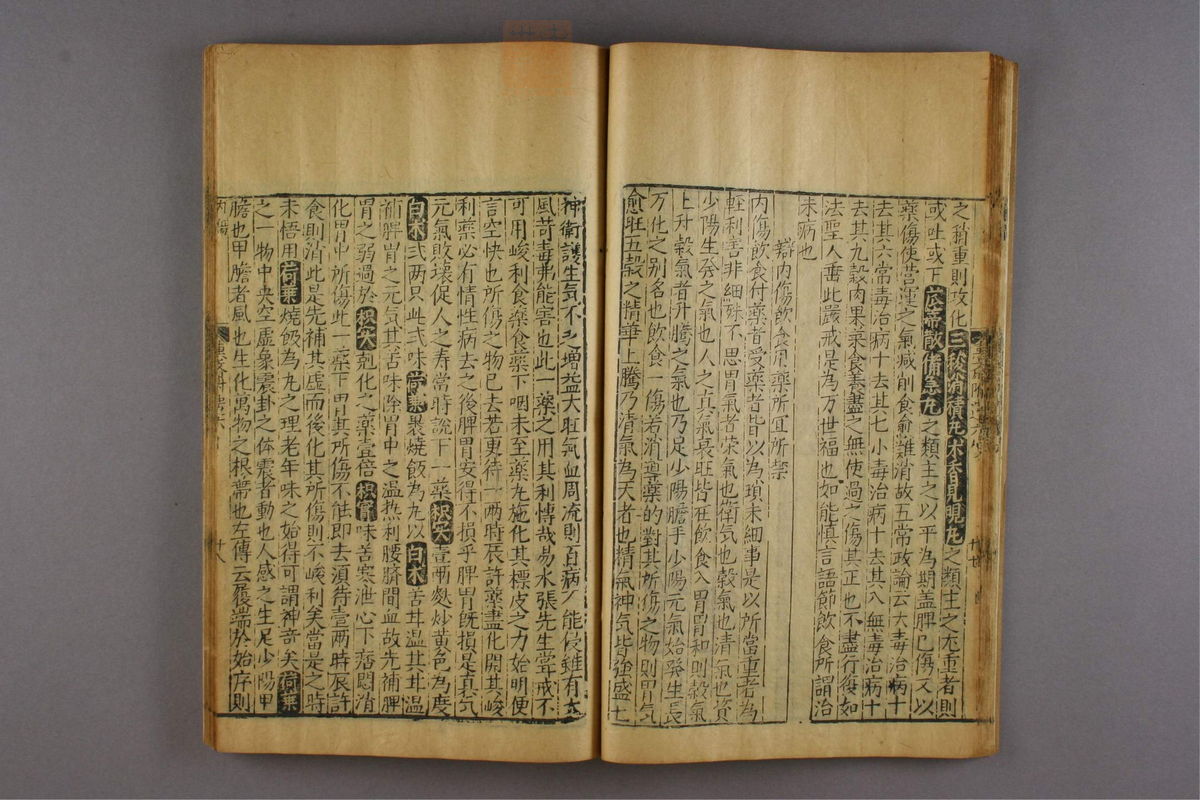 之稍重則攻化三稜消積丸木香見晛丸之類主之尤重者則
或吐或下瓜蒂散備急丸之類主之以平為期盖脾已傷又以
藥傷使营運之气減削食愈難消故五常政論云大毒治病十
去其六常毒治病十去其七小毒治病十去其八無毒治病十
去其九穀肉果菜食养盡之無使過之傷其正也不盡行復如
法聖人垂此嚴戒是為万世福也如能慎言語節飲食所謂治
未病也
辯内傷飲食用藥所宜所禁
内傷飲食付藥者受藥者皆以為瑣末細事是以所當重者為
輕利害非細殊不思胃氣者荣氣也衛气也穀氣也清氣也资
少陽生发之氣也人之真氣衰旺皆在飲食入胃胃和則穀氣
上升穀氣者升騰之氣也乃足少陽膽手少陽元氣始發生長
万化之别名也飲食一傷若消導藥的對其所傷之物則胃气
愈旺五穀之精華上騰乃清气為天者也精氣神气皆強盛七
神衛護生气不乏增益大旺气血周流則百病不能侵雖有大
風苛毒弗能害也此一藥之用其利愽哉易水張先生嘗戒不
可用峻利食藥食藥下咽未至藥丸施化其標皮之力始明便
言空快也所傷之物已去若更待一兩時辰許藥盡化開其峻
利藥必有情性病去之後脾胃安得不損乎脾胃既損是真气
元氣敗壞促人之寿當時說下一藥枳实壹兩麩炒黄色為度
白术弍两只此弍味荷葉裹燒飯為丸以白术苦甘温其甘温
補脾胃之元气其苦味除胃中之濕热利腰臍間血故先補脾
胃之弱過於枳实尅化之藥壹倍枳實味苦寒泄心下痞悶消
化胃中所傷此一藥下胃其所傷不能即去須待壹两時辰許
食則消此是先補其虚而後化其所傷則不峻利矣當是之時
未悟用荷葉燒飯為丸之理老年味之始得可謂神奇矣荷葉
之一物中央空虚象震卦之体震者動也人感之生足少陽甲
膽也甲膽者風也生化萬物之根蒂也左傳云履端於始序則
内傷
十八